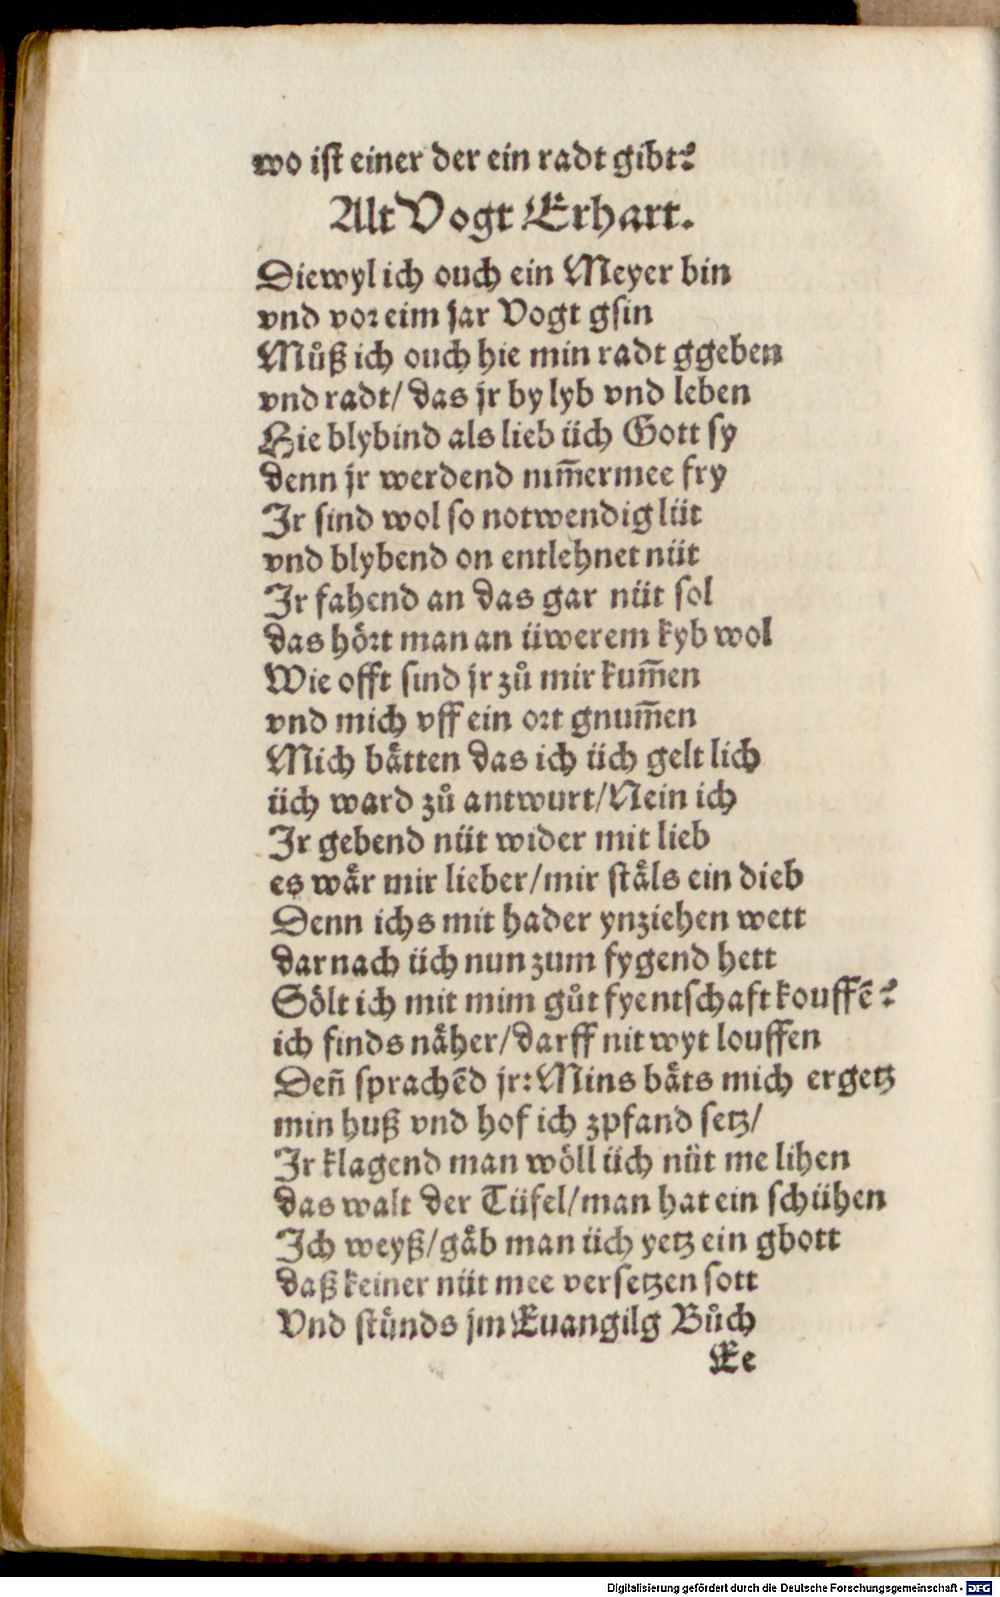 wo ist einer der ein radt gibt?
Alt Vogt Erhart.
Diewyl ich ouch ein Meyer bin
vnd vor eim jar Vogt gsin
Můß ich ouch hie min radt ggeben
vnd radt/ das jr by lyb vnd leben
Hie blybind als lieb üch Gott sy
denn jr werdend nim̄ermee fry
Ir sind wol so notwendig lüt
vnd blybend on entlehnet nüt
Ir fahend an das gar nüt sol
das hoͤrt man an üwerem kyb wol
Wie offt sind jr zů mir kum̄en
vnd mich vff ein ort gnum̄en
Mich baͤtten das ich üch gelt lich
üch ward zů antwurt/Nein ich
Ir gebend nüt wider mit lieb
es waͤr mir lieber/mir staͤls ein dieb
Denn ichs mit hader ynziehen wett
darnach üch nun zum fygend hett
Soͤlt ich mit mim gůt fyentschaft kouffē?
ich finds naͤher/darff nit wyt louffen
Den̄ sprachēd jr: Mins baͤts mich ergetz
min huß vnd hof ich zpfand setz/
Ir klagend man woͤll üch nüt me lihen
das walt der Tüfel/man hat ein schühen
Ich weyß/gaͤb man üch yetz ein gbott
daß keiner nüt mee versetzen sott
Vnd stůnds jm Euangilg Bůch
Ee
Digitalisierung gefördert durch die Deutsche Forschungsgemeinschaft - DFG